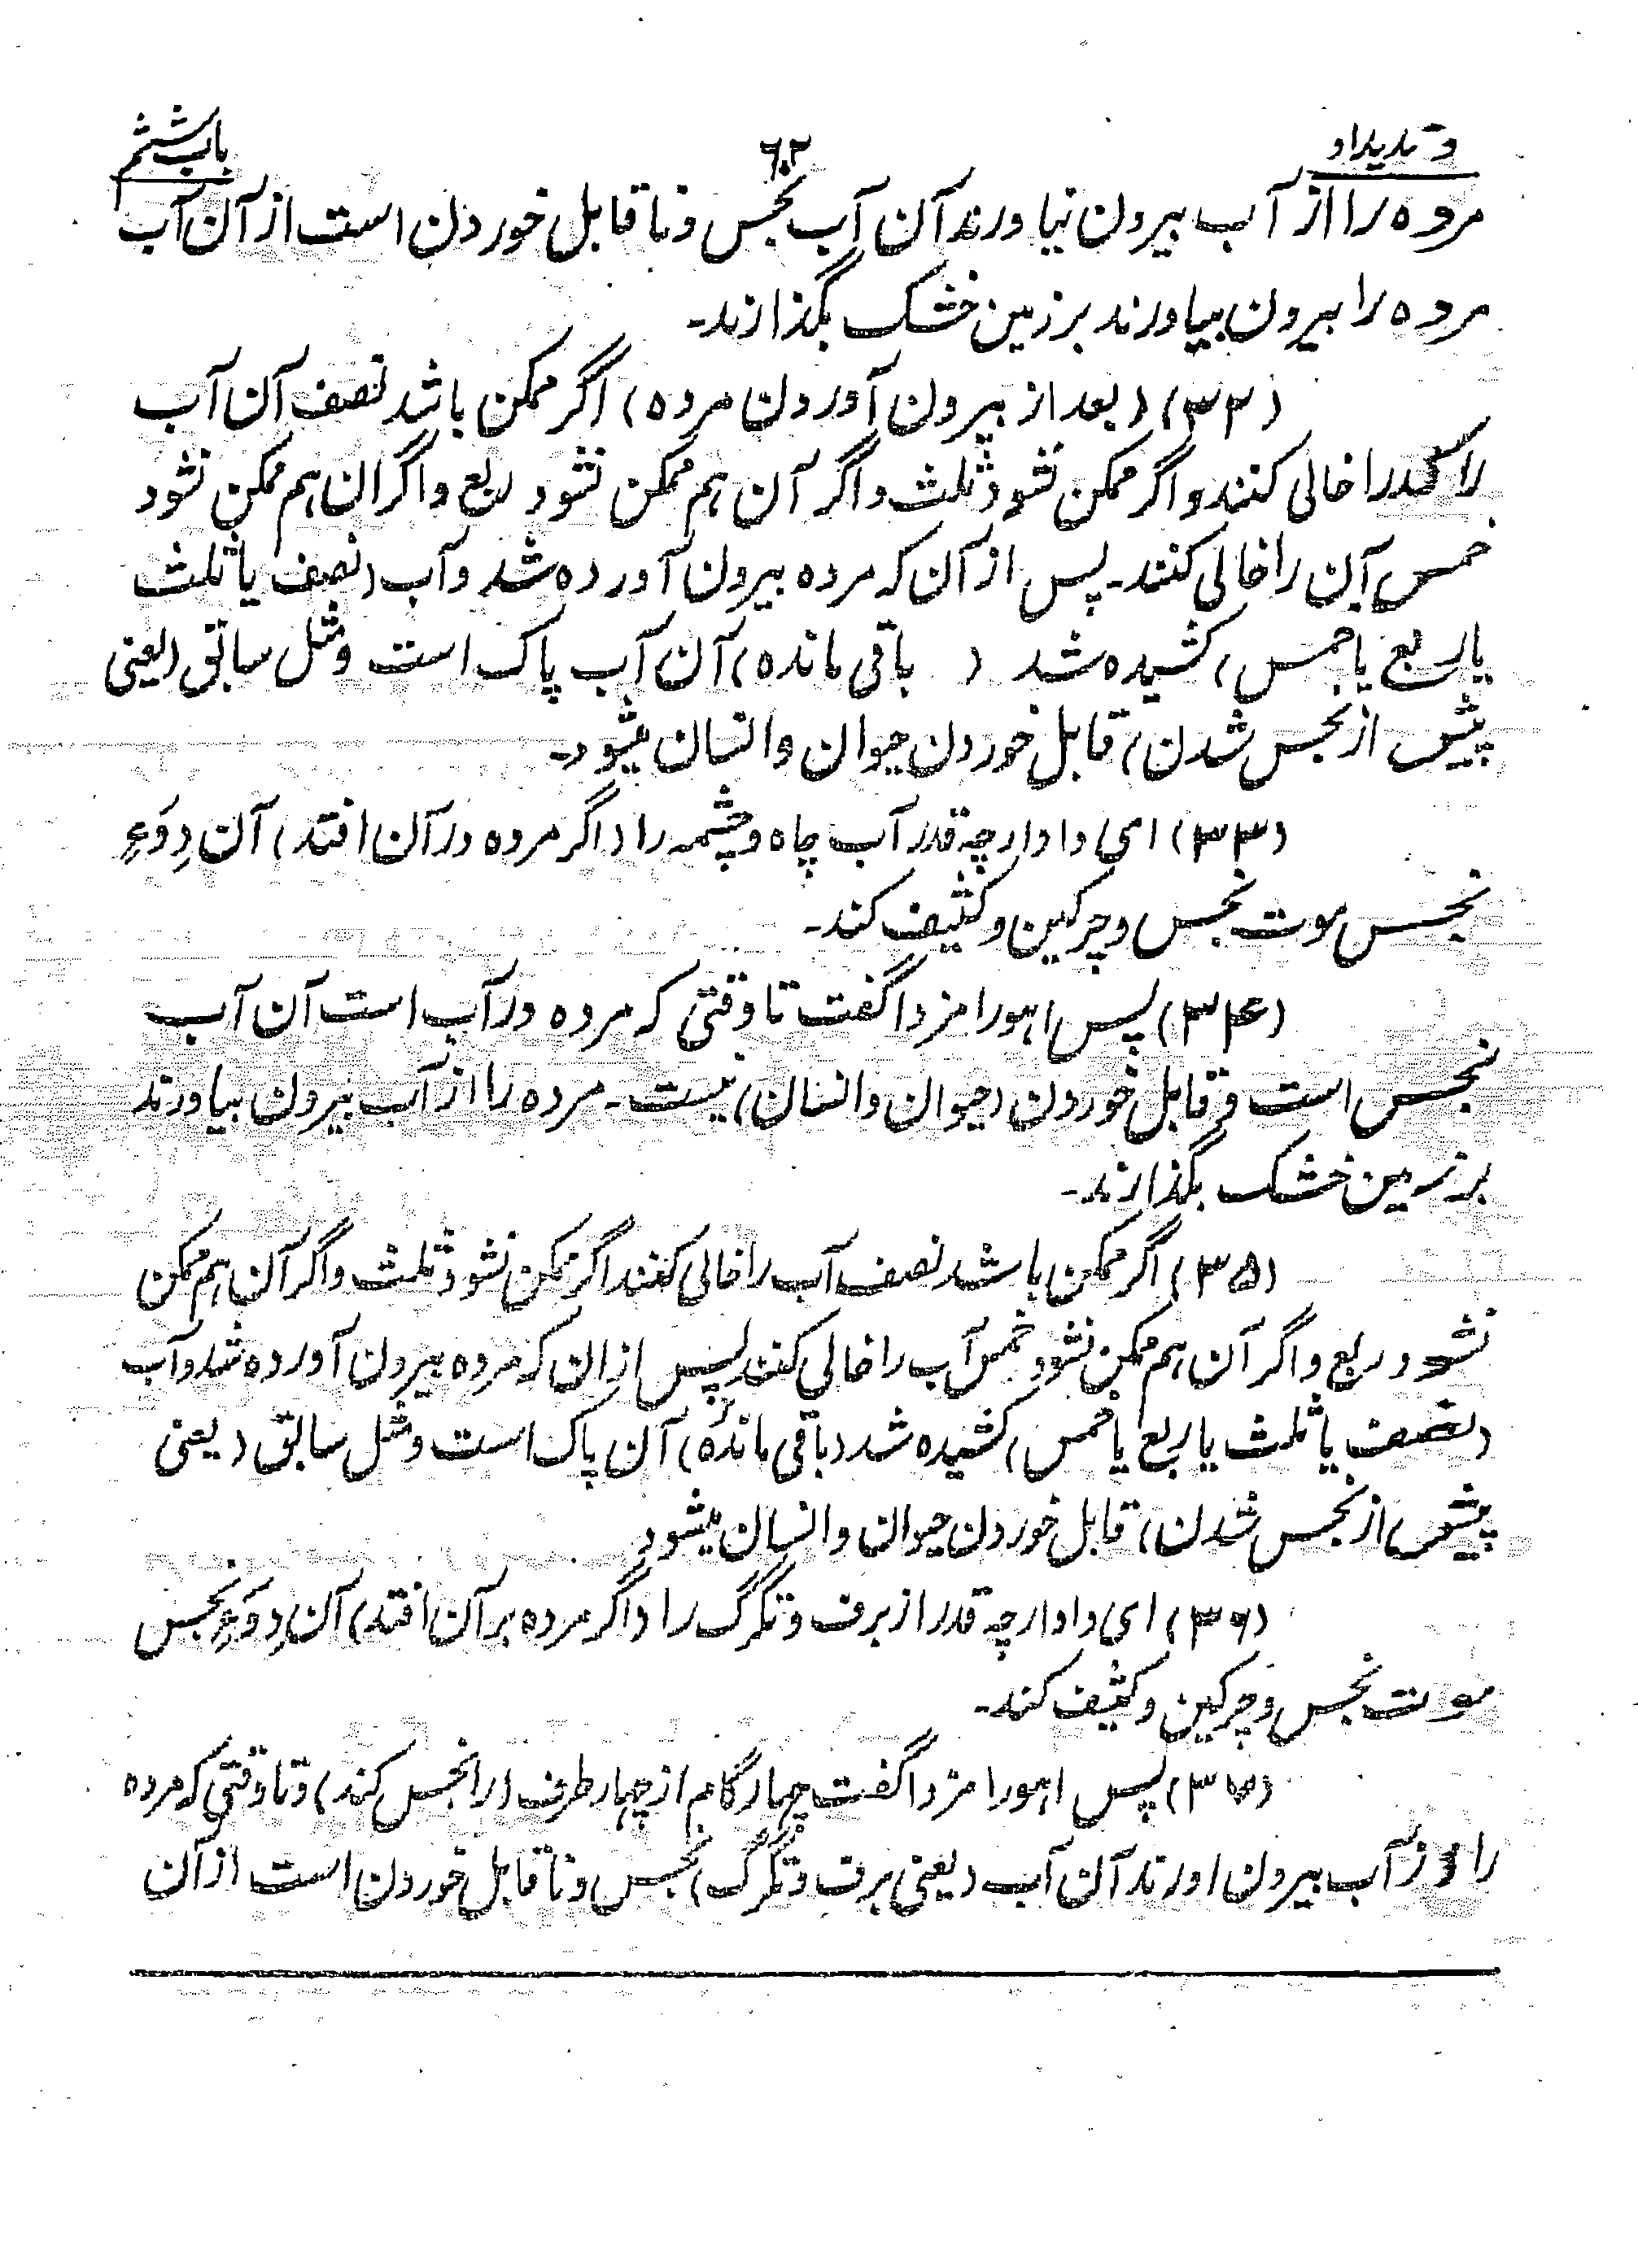 وندیداد ۶۲ باب ششم
مرده را از آب بیرون نیاورند آن آب نجس و نا قابل خوردن است از آن آب
مرده را بیرون بیاورند بر زمین خشک بگذارند۔
(۳۲) (بعد از بیرون آوردن مرده) اگر ممکن باشد نصف آن آب
راکدرا خالی کنند و اگر ممکن نشود ثلث و اگر آن هم ممکن نشود ربع و اگر ان هم ممکن نشود
خمس آن را خالی کنند۔ پس از آن که مرده بیرون آورده شد و آب (نصف یا ثلث
یا ربع یا خمس) کشیده شد ( باقی مانده) آن آب پاک است و مثل سابق (یعنی
پیش از نجس شدن) قابل خوردن حیوان و انسان میشود۔
(۳۳) ای دادار چه قدر آب چاه و چشمه را (اگر مرده در آن افتد) آن دِوَءِ
نجس موت نجس و چرکین و کثیف کند۔
(۳۴) پس اهورا مزدا گفت تا وقتی که مرده در آب است آن آب
نجس است و قابل خوردن (حیوان و انسان) نیست۔ مرده را از آب بیرون بیاورند
بر زمین خشک بگذارند۔
(۳۵) اگر ممکن باشد نصف آب را خالی کنند اگر ممکن نشود ثلث و اگر آن هم ممکن
نشود ربع و اگر آن هم ممکن نشود خمس آب را خالی کنند پس از ان که مرده بیرون آورده شد و آب
(نصف یا ثلث یا ربع یا خمس) کشیده شد (باقی مانده) آن پاک است و مثل سابق (یعنی
پیش از نجس شدن) قابل خوردن حیوان و انسان میشود
(۳۶) ای دادار چه قدر از برف و تگرگ را (اگر مرده بر آن افتد) آن دِوَءِ نجس
موت نجس و چرکین و کثیف کند۔
(۳۷) پس اهورا مزدا گفت چهار گام از چهار طرف (را نجس کند) و تا وقتی که مرده
را از آب بیرون اورند آن آب (یعنی برف و تگرگ) نجس و نا قابل خوردن است از آن